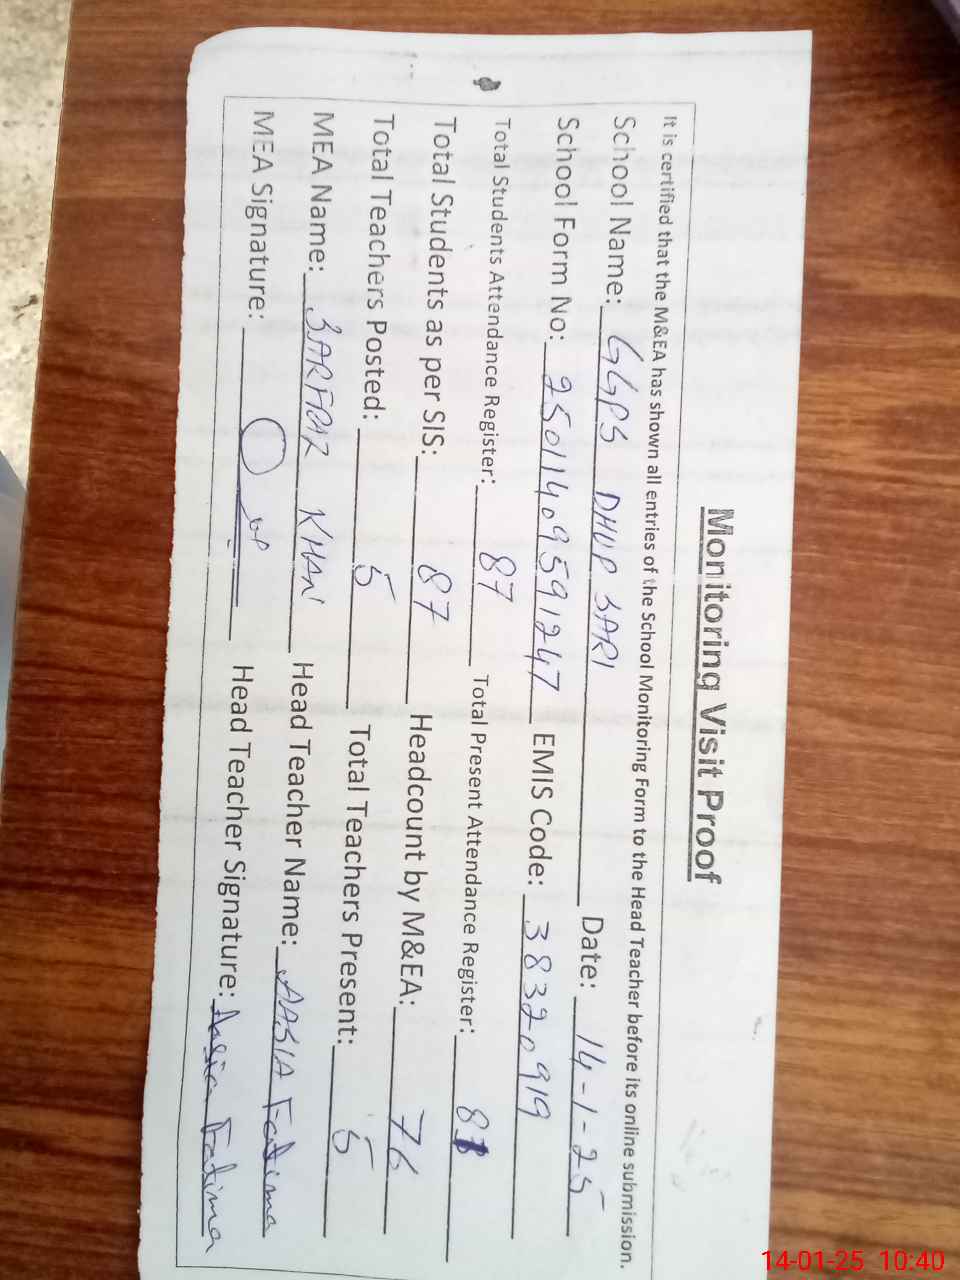 Monitoring Visit Proof
It is certified that the M&EA has shown all entries of the School Monitoring Form to the Head Teacher before its online submission.
School Name: GGPS DHUP SARI Date: 14-1-25
School Form No: 250114095591247 EMIS Code: 38320919
Total Students Attendance Register: 87 Total Present Attendance Register: 
Total Students as per SIS: 87 Headcount by M&EA: 76
Total Teachers Posted: 5 Total Teachers Present: 5
MEA Name: SARFRAZ KHAN Head Teacher Name: AASIA Fatima
MEA Signature: Head Teacher Signature: Aasia Fatima
14-01-25 10:40